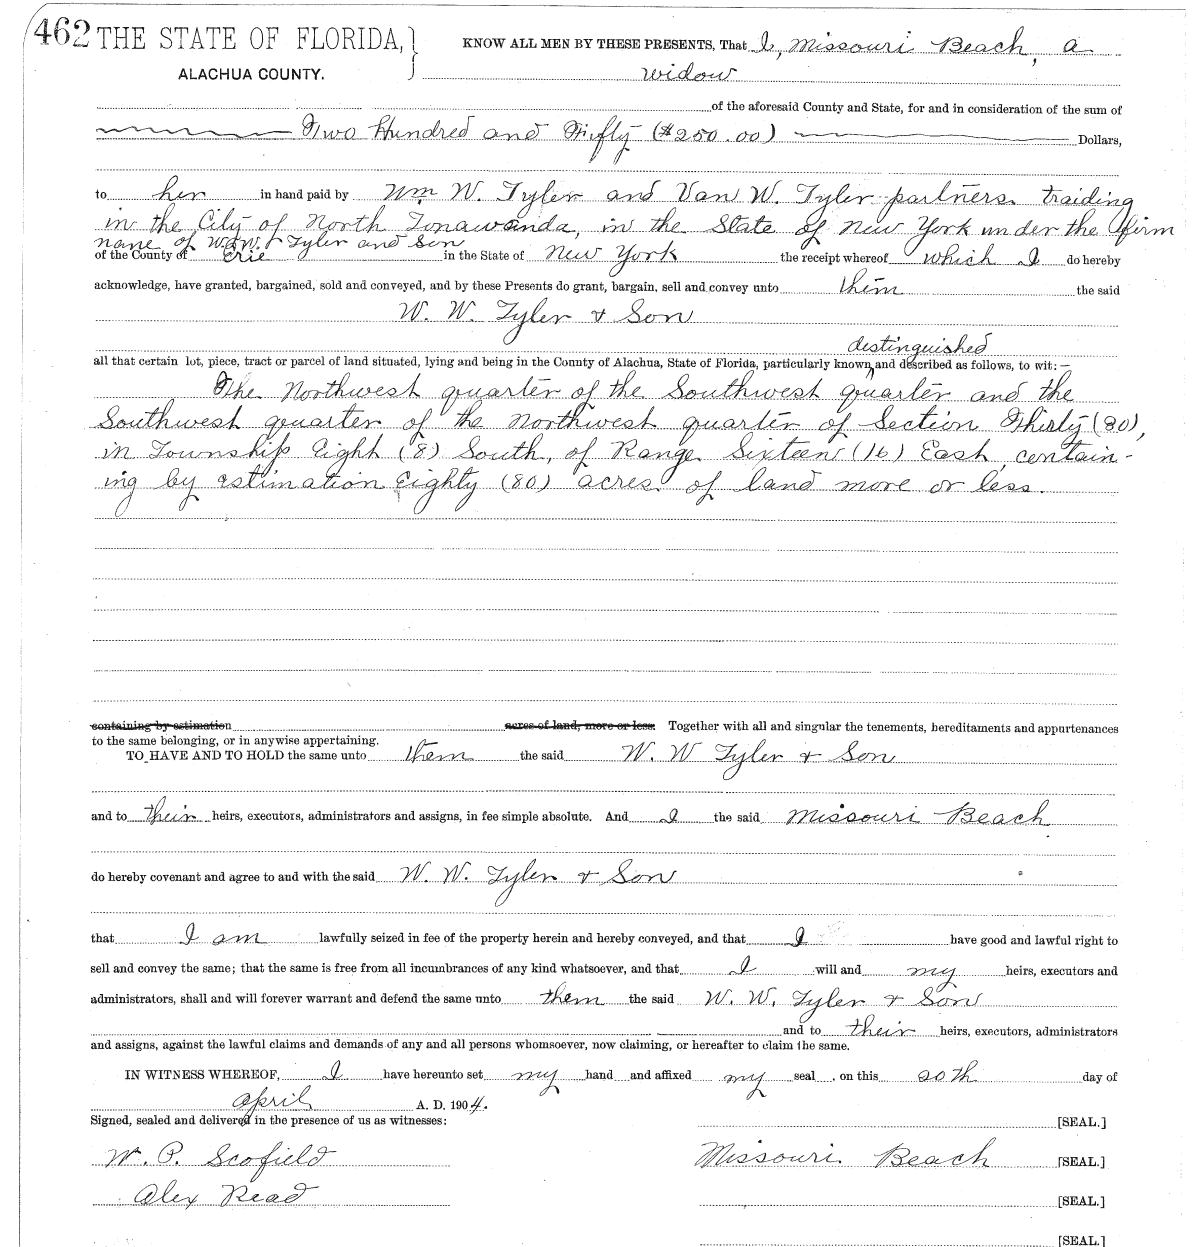 462 THE STATE OF FLORIDA, } KNOW ALL MEN BY THESE PRESENTS, That I, Missouri Beach, a
ALACHUA COUNTY. widow
of the aforesaid County and State, for and in consideration of the sum of
Two Hundred and Fifty ($250.00) Dollars,
to her in hand paid by Wm W. Tyler and Van W. Tyler partners traiding
in the City of North Tonawanda, in the State of New York under the firm
name of W. W. Tyler and Son
of the County of Erie in the State of New York the receipt whereof which I do hereby
acknowledge, have granted, bargained, sold and conveyed, and by these Presents do grant, bargain, sell and convey unto them the said
W. W. Tyler & Son
distinguished
all that certain lot, piece, tract or parcel of land situated, lying and being in the County of Alachua, State of Florida, particularly known and described as follows, to wit:—
The Northwest quarter of the Southwest quarter and the
Southwest quarter of the Northwest quarter of Section Thirty (30),
in Township Eight (8) South, of Range Sixteen (16) East, contain-
ing by estimation Eighty (80) acres of land more or less.
containing by estimation acres of land, more or less. Together with all and singular the tenements, hereditaments and appurtenances
to the same belonging, or in anywise appertaining.
TO HAVE AND TO HOLD the same unto them the said W. W Tyler & Son
and to their heirs, executors, administrators and assigns, in fee simple absolute. And I the said Missouri Beach
do hereby covenant and agree to and with the said W. W. Tyler & Son
that I am lawfully seized in fee of the property herein and hereby conveyed, and that I have good and lawful right to
sell and convey the same; that the same is free from all incumbrances of any kind whatsoever, and that I will and my heirs, executors and
administrators, shall and will forever warrant and defend the same unto them the said W. W. Tyler & Son
and to their heirs, executors, administrators
and assigns, against the lawful claims and demands of any and all persons whomsoever, now claiming, or hereafter to claim the same.
IN WITNESS WHEREOF, I have hereunto set my hand and affixed my seal . on this 20th day of
april A. D. 1904.
Signed, sealed and delivered in the presence of us as witnesses: [SEAL.]
W. P. Scofield Missouri Beach [SEAL.]
Alex Read [SEAL.]
[SEAL.]